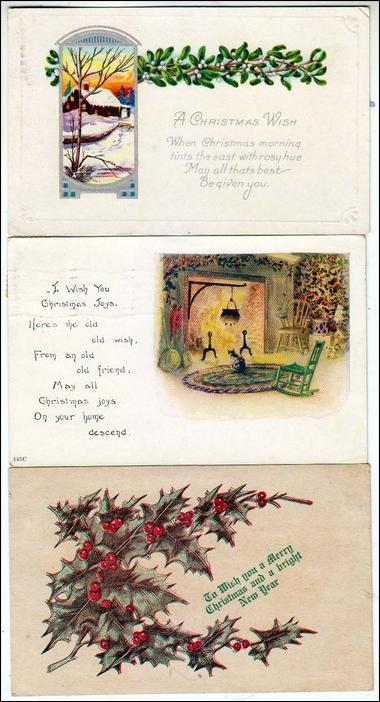 A CHRISTMAS WISH
When Christmas morning
tints the east with rosy hue
May all that's best
Be given you.
I Wish You
Christmas Joys.
Here's the old
old wish,
From an old
old friend:
May all
Christmas joys
On your home
descend.
445C
To Wish you a Merry
Christmas and a bright
New Year